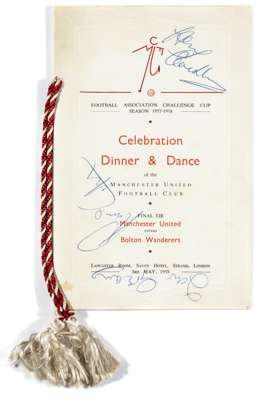 FOOTBALL ASSOCIATION CHALLENGE CUP
SEASON 1957-1958
Celebration
Dinner & Dance
of the
MANCHESTER UNITED
FOOTBALL CLUB
FINAL TIE
Manchester United
versus
Bolton Wanderers
LANCASTER ROOM, SAVOY HOTEL, STRAND, LONDON
3RD MAY, 1958